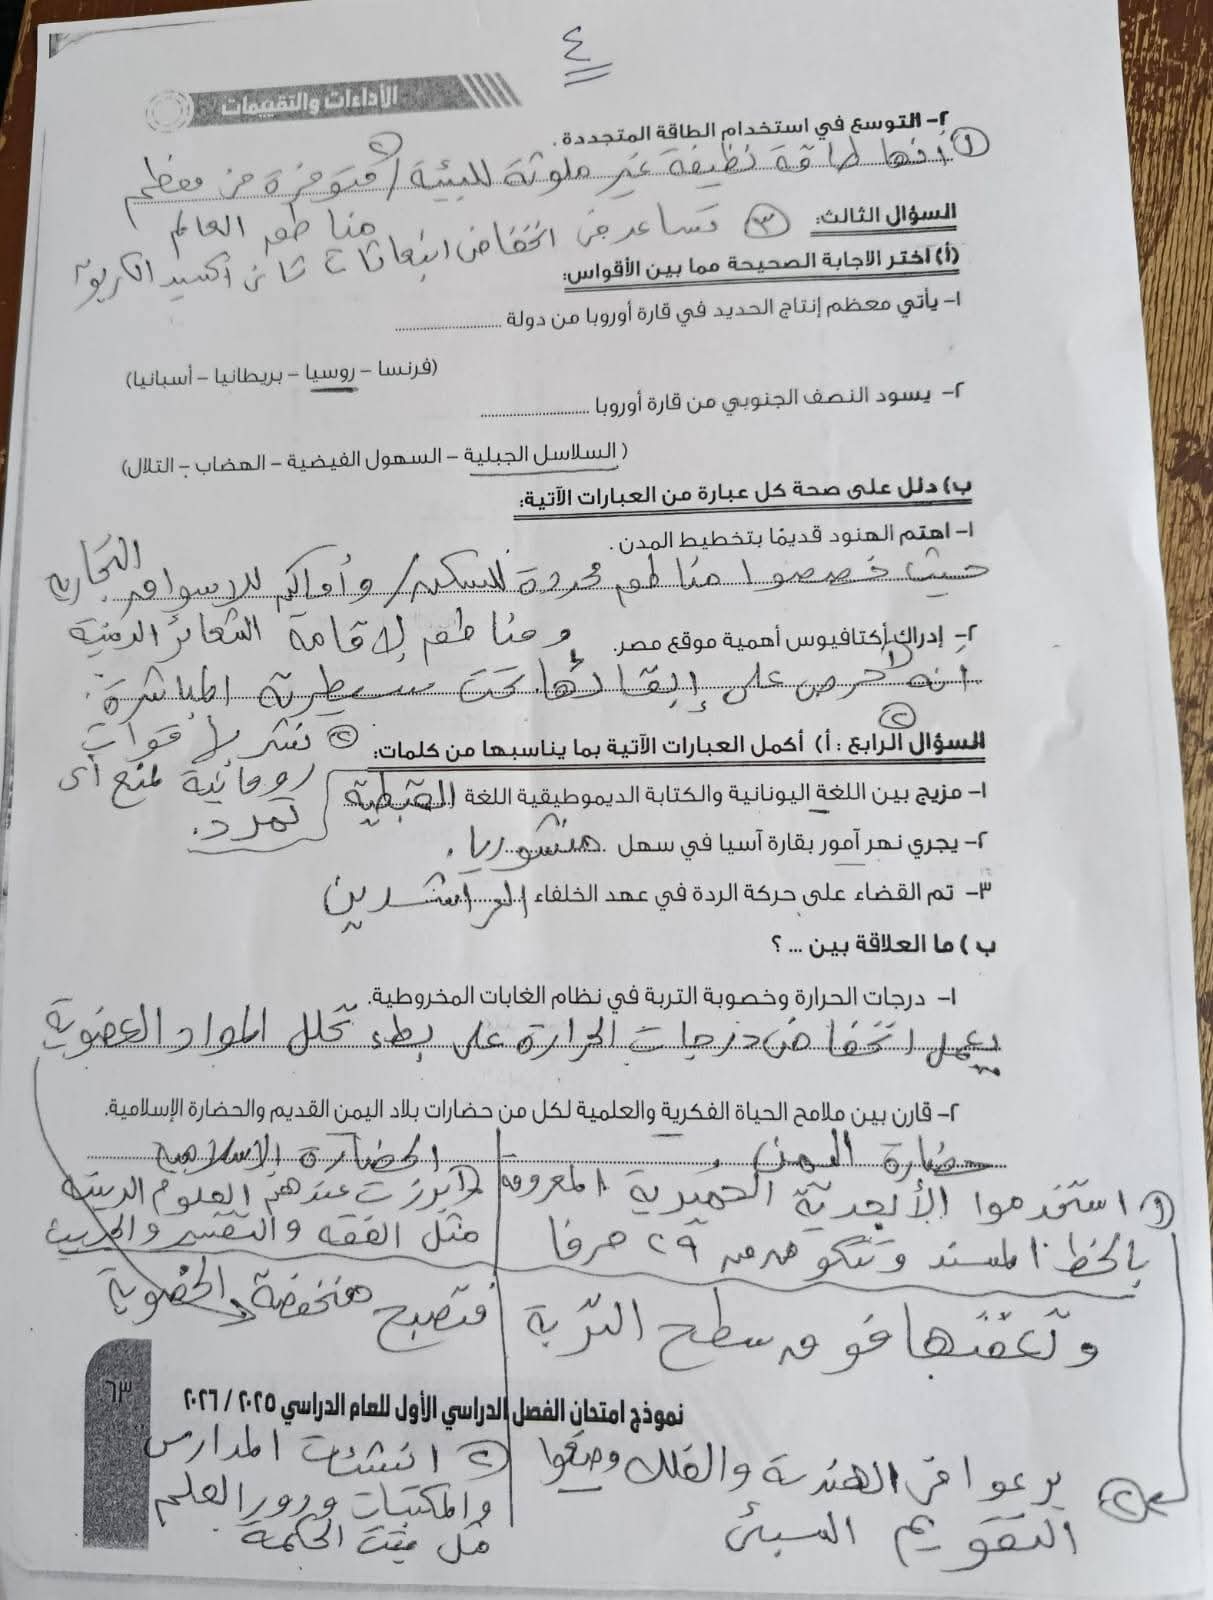 ٤
الأداءات والتقييمات
٢- التوسع في استخدام الطاقة المتجددة.
① أنها طاقة نظيفة غير ملوثة للبيئة / ② متوفرة في معظم
مناطق العالم
السؤال الثالث: ③ تساعد في انخفاض انبعاثات ثاني أكسيد الكربون
(أ) اختر الاجابة الصحيحة مما بين الأقواس:
١- يأتي معظم إنتاج الحديد في قارة أوروبا من دولة ..........
(فرنسا – روسيا – بريطانيا – أسبانيا)
٢- يسود النصف الجنوبي من قارة أوروبا ..........
(السلاسل الجبلية – السهول الفيضية – الهضاب – التلال)
ب) دلل على صحة كل عبارة من العبارات الآتية:
١- اهتم الهنود قديمًا بتخطيط المدن.
حيث خصصوا مناطق محددة للسكن / وأماكن للاسواق التجارية
ومناطق لإقامة الشعائر الدينية
٢- إدراك أكتافيوس أهمية موقع مصر.
① أنه حرص على إبقائها تحت سيطرته المباشرة.
② نشر لا قوات
رومانية لمنع أى
تمرد.
السؤال الرابع: أ) أكمل العبارات الآتية بما يناسبها من كلمات: ②
١- مزيج بين اللغة اليونانية والكتابة الديموطيقية اللغة القبطية
٢- يجري نهر آمور بقارة آسيا في سهل منشوريا.
٣- تم القضاء على حركة الردة في عهد الخلفاء الراشدين
ب) ما العلاقة بين ... ؟
١- درجات الحرارة وخصوبة التربة في نظام الغابات المخروطية.
يعمل انخفاض درجات الحرارة على بطء تحلل المواد العضوية
٢- قارن بين ملامح الحياة الفكرية والعلمية لكل من حضارات بلاد اليمن القديم والحضارة الإسلامية.
حضارة اليمن الحضارة الإسلامية
① استخدموا الأبجدية الحميرية المعروفة ① برزت عندهم العلوم الدينية
بالخط المسند وتتكون من ٢٩ حرفا مثل الفقه والتفسير والحديث
وتعفنها فوق سطح التربة فتصبح منخفضة الخصوبة
نموذج امتحان الفصل الدراسي الأول للعام الدراسي ٢٠٢٥ / ٢٠٢٦
٦٣
② برعوا في الهندسة والفلك وصنعوا ② انشئت المدارس
التقويم السبئى والمكتبات ودور العلم
مثل بيت الحكمة